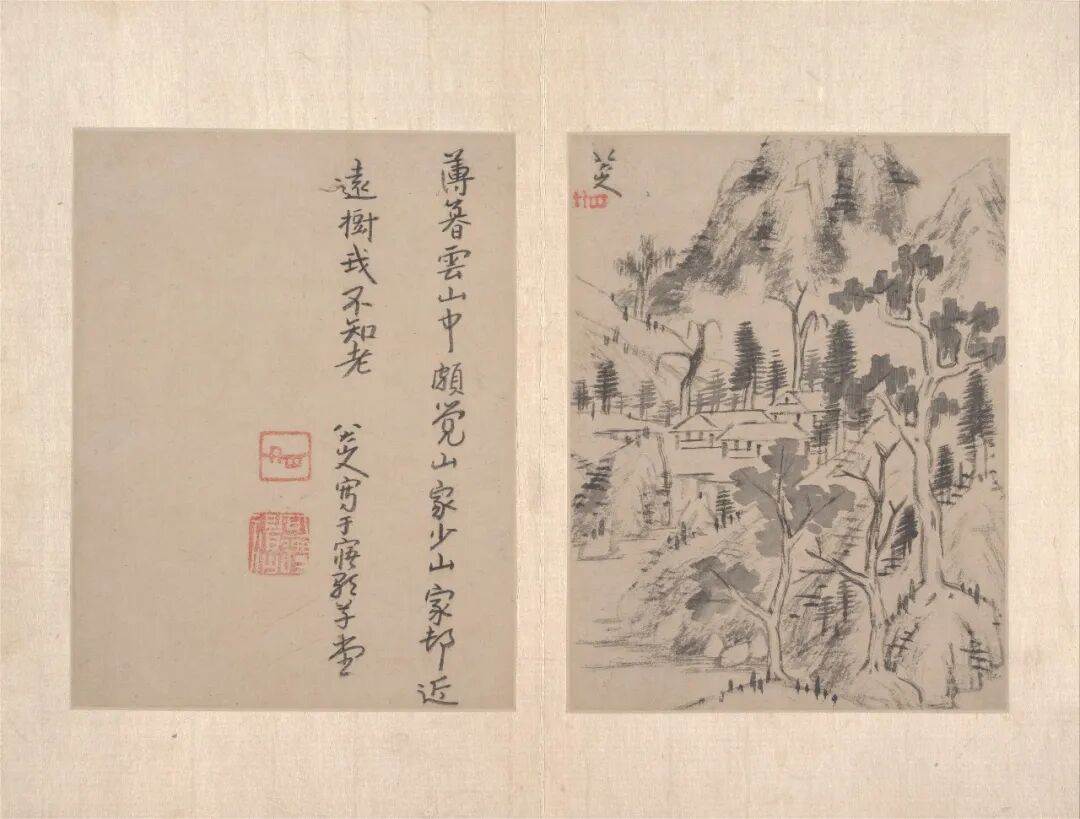 八大山人
薄暮雲山中頗覚山家少山家邨近
遠樹我不知老 八大山人寫于寤歌草堂